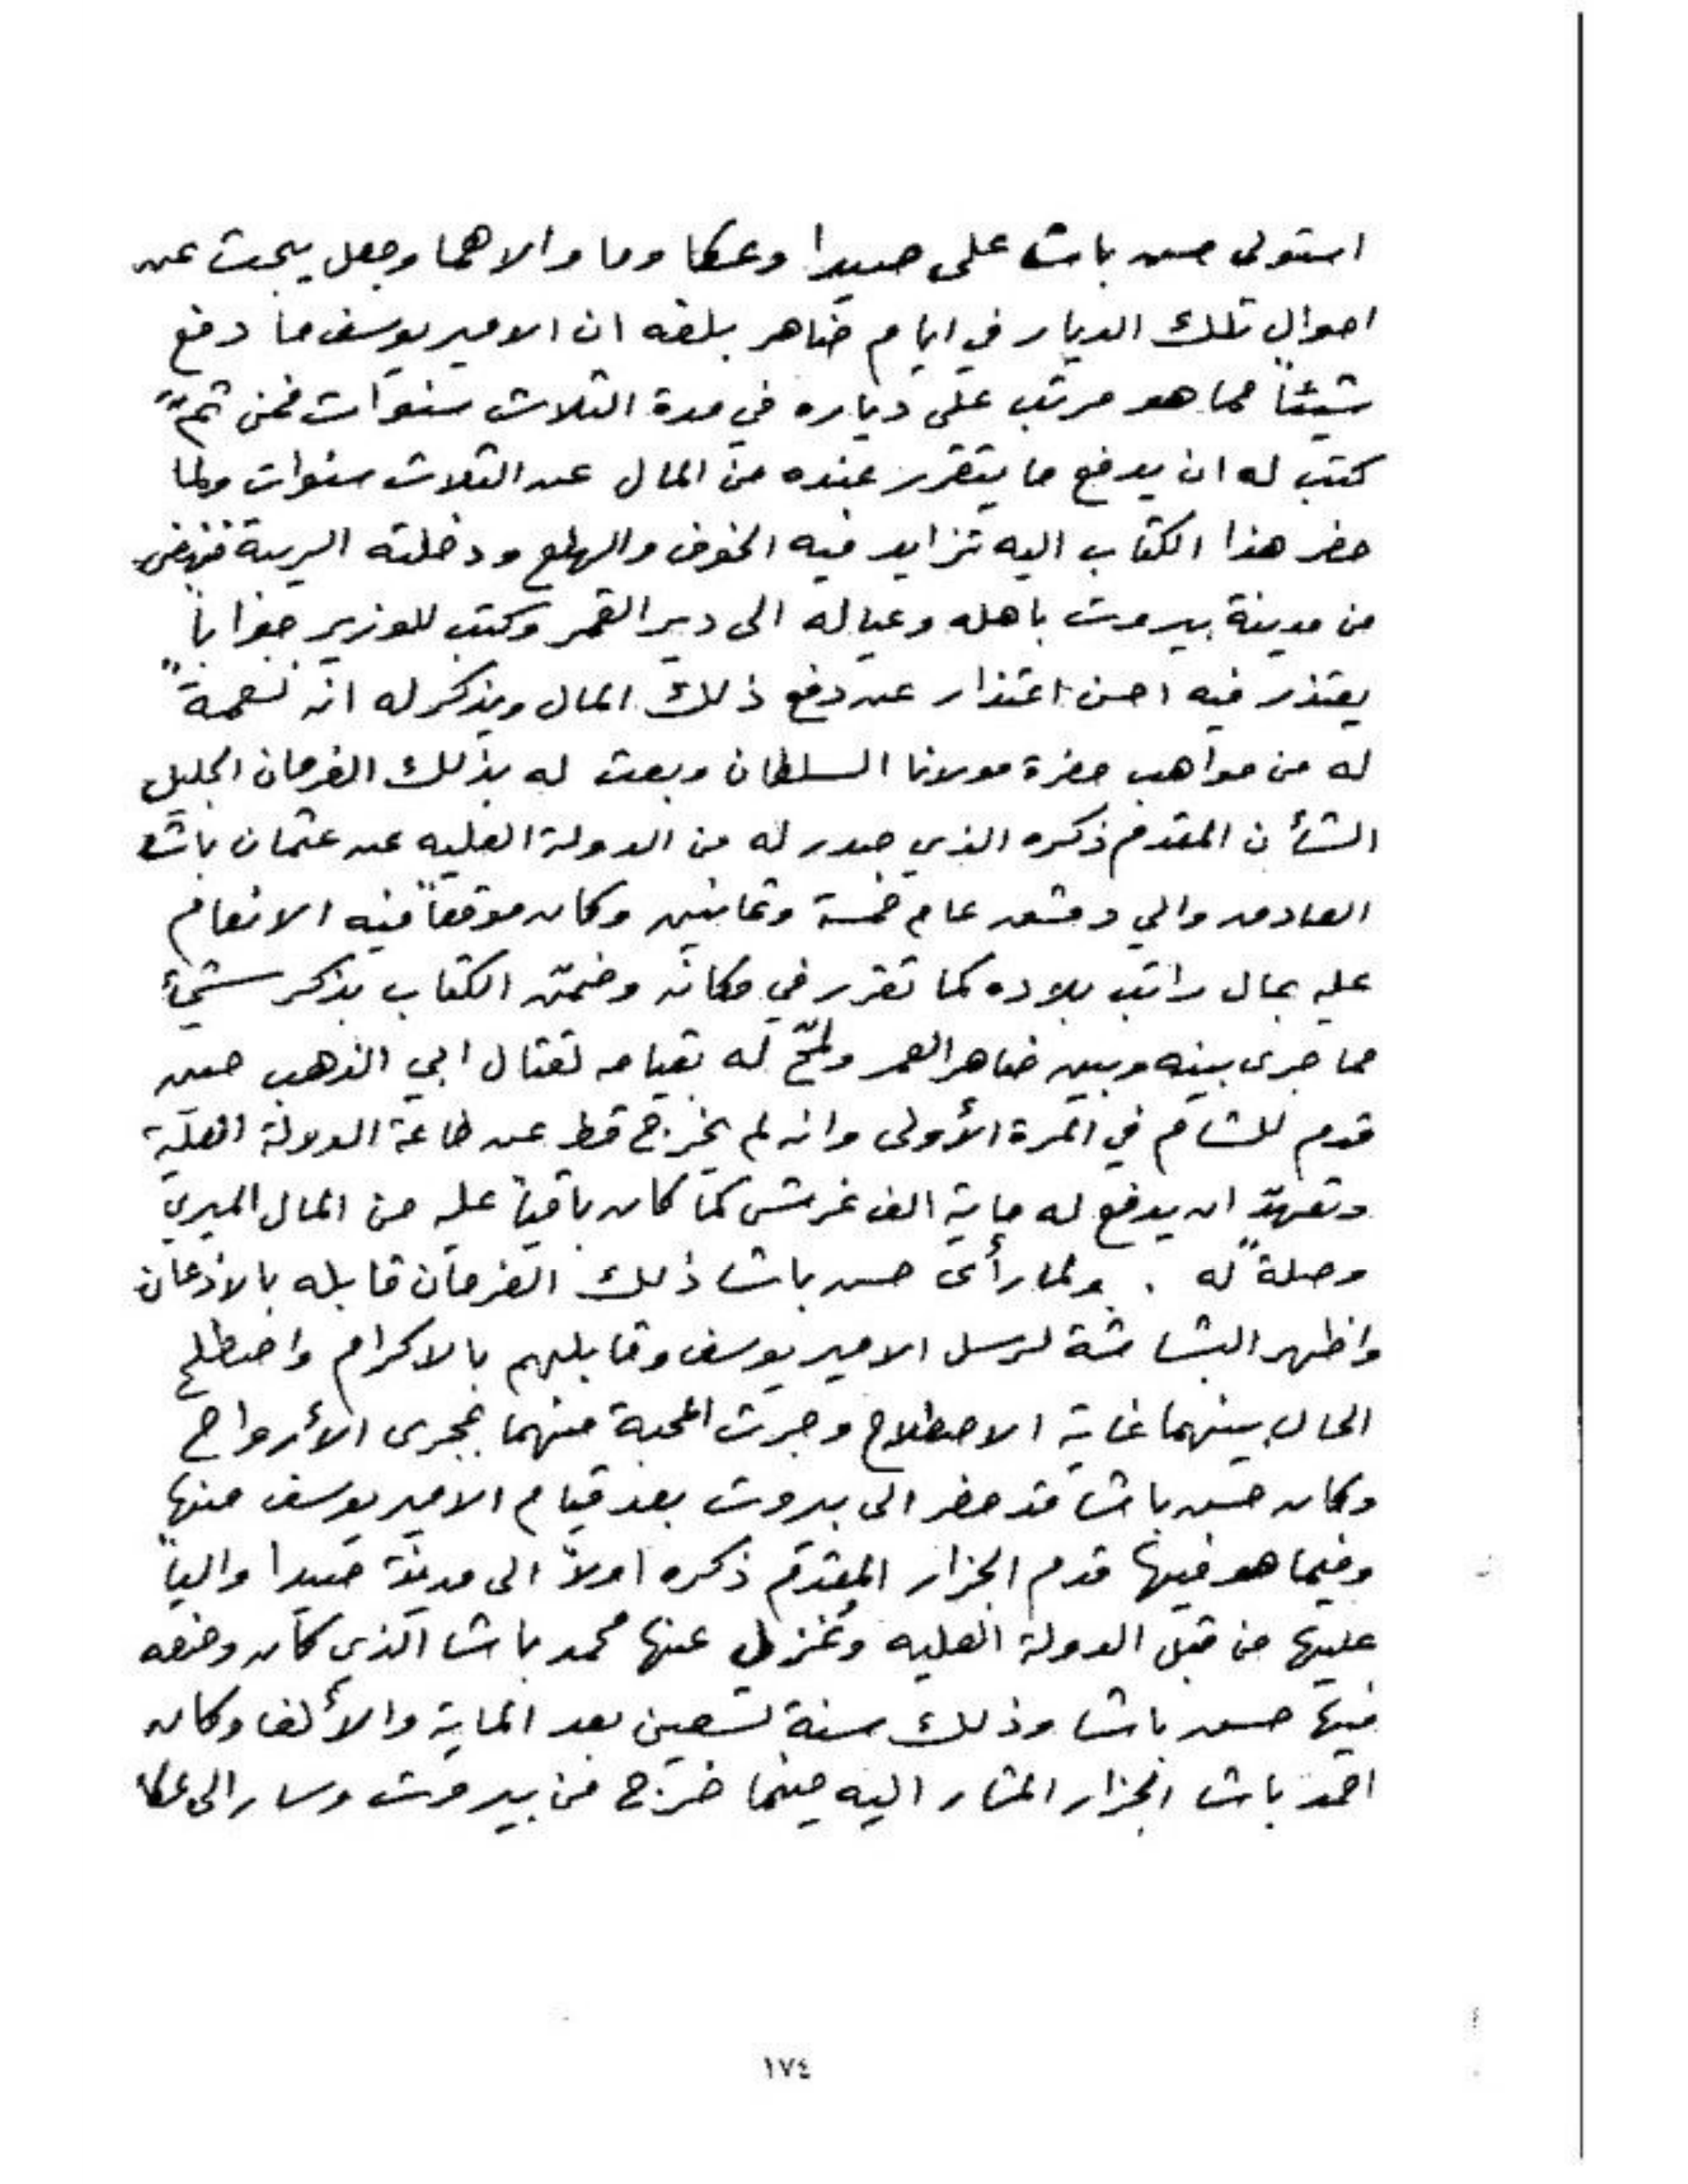 استولى حسن باشا على صيدا وعكا وما والاهما وجعل يبحث عن
احوال تلك الديار في ايام ضاهر بلغه ان الامير يوسف ما دفع
شيئاً مما هو مرتب على دياره في مدة الثلاث سنوات فمن ثمَّ
كتب له ان يدفع ما يتقرر عنده من المال عن الثلاث سنوات ولما
حضر هذا الكتاب اليه تزايد فيه الخوف والهلع ودخلته الريبة فنهض
من مدينة بيروت باهله وعياله الى دير القمر وكتب للوزير جواباً
يعتذر فيه احسن اعتذار عن دفع ذلك المال ويذكر له انه نعمةً
له من مواهب حضرة مولانا السلطان وبعث له بذلك الفرمان الجليل
الشأن المقدم ذكره الذي صدر له من الدولة العليه عن عثمان باشا
الصادق والي دمشق عام خمسة وثمانين وكان موقعاً فيه الانعام
عليه بمال راتب بلاده كما تقرر في مكانه وضمّن الكتاب بذكر شيءٍ
مما جرى بينه وبين ضاهر العمر ولمّح له بقيامه لقتال ابي الذهب حين
قدم للشام في المرة الأولى وانه لم يخرج قط عن طاعة الدولة العليّة
وتعهدّ ان يدفع له ماية الف غرش كما كان باقياً عليه من المال الميري
وصلةً له . ولما رأى حسن باشا ذلك الفرمان قابله بالاذعان
واظهر البشاشة لرسل الامير يوسف وقابلهم بالاكرام واصطلح
الحال بينهما غاية الاصطلاح وجرت المحبة منهما مجرى الأرواح
وكان حسن باشا قد حضر الى بيروت بعد قيام الامير يوسف منها
وفيما هو فيها قدم الجزار المقدّم ذكره اولاً الى مدينة صيدا والياً
عليها من قبل الدولة العليه وعُزل عنها محمد باشا الذي كان وضعه
فيها حسن باشا وذلك سنة تسعين بعد الماية والألف وكان
احمد باشا الجزار المشار اليه حينما خرج من بيروت وسار الى عكا
١٧٤